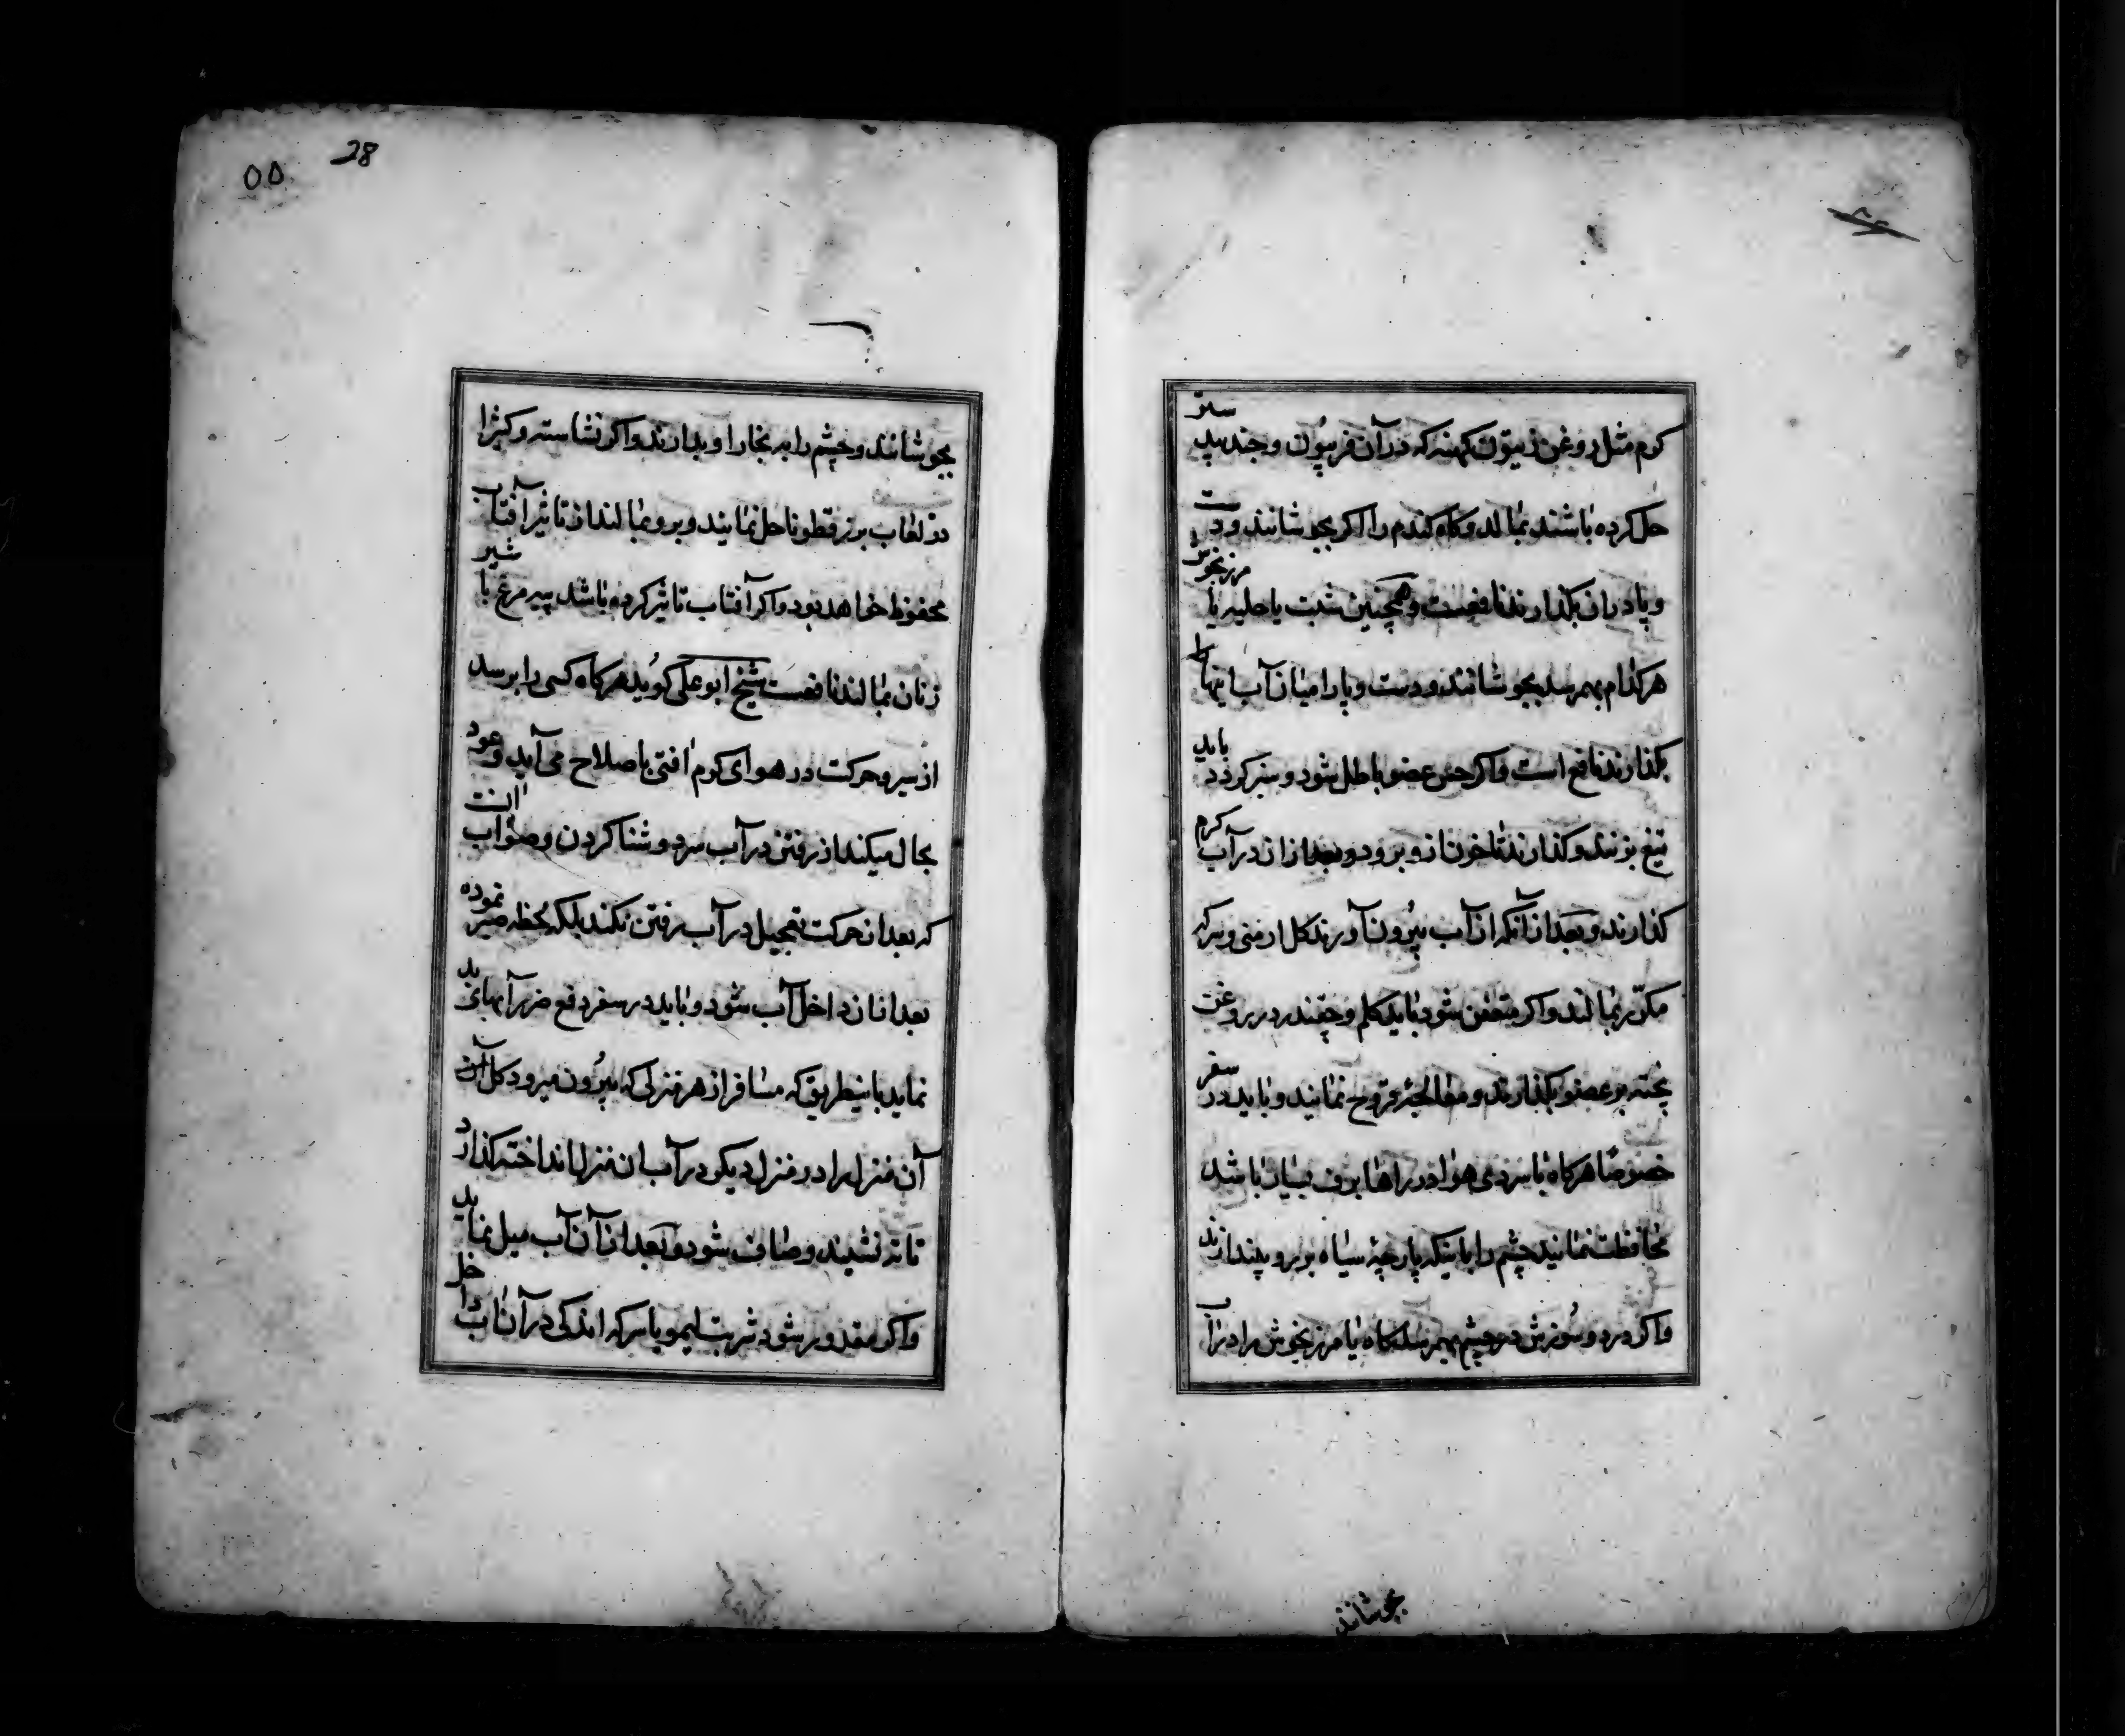 کرم مثل روغن زیتون کهنه که در آن فرپیون و جند بیدستر
حل کرده باشند بمالند و کاه کندم را اکر بجوشانند و دست
و پا در ان بکذارند نافعست و همچنین شبت یا حلبه یا مرزنجوش
هر کدام بهمرسد بجوشانند و دست و پا را میان آب اینها
بکذارند نافع است و اکر حس عضو باطل شود و سبز کردد باید
تیغ بزنند و کذارند تا خون ازو برود و بعد از ان در آب کرم
کذارند و بعد از آنکه از آب بیرون آورند کل ارمنی و سرکه
مکرّر بمالند و اکر متعفن شود باید کلم و چقندر در روغن
پخته بر عضو بکذارند و معالجهٔ قروح نمایند و باید در سفر
خصوصًا هرکاه با سردی هوا در راهها برف بسیار باشد
محافظت نمایند چشم را باینکه پارچهٔ سیاه بر رو بیندازند
و اکر درد و سوزش در چشم بهمرسد کاه یا مرزنجوش را در آب
بجوشانند
۵۵ 28
بجوشانند و چشم را به بخار او بدارند و اکر نشاسته و کثیرا
در لعاب بزرقطونا حل نمایند و برو بمالند از تاثیر آفتاب
محفوظ خواهد بود و اکر آفتاب تاثیر کرده باشد پیه مرغ با شیر
زنان بمالند نافعست شیخ ابو علی کوید هرکاه کسی را برسد
از سیر و حرکت در هوای کرم افتی باصلاح می آید و عود
بحال میکند از رفتن در آب سرد و شنا کردن و صواب انست
که بعد از حرکت تعجیل در آب رفتن نکند بلکه لحظه صبر نموده
بعد از ان داخل آب شود و باید در سفر دفع ضرر آبهای بد
نماید باینطریق که مسافر از هر منزلی که بیرون میرود کل آن
آن منزل را در منزل دیکر در آب ان منزل انداخته کذارد
تا ته نشیند و صاف شود و بعد از آن آن آب میل نماید
و اکر مقدور شود شربت لیمو یا سرکه اندکی در آن آب داخل